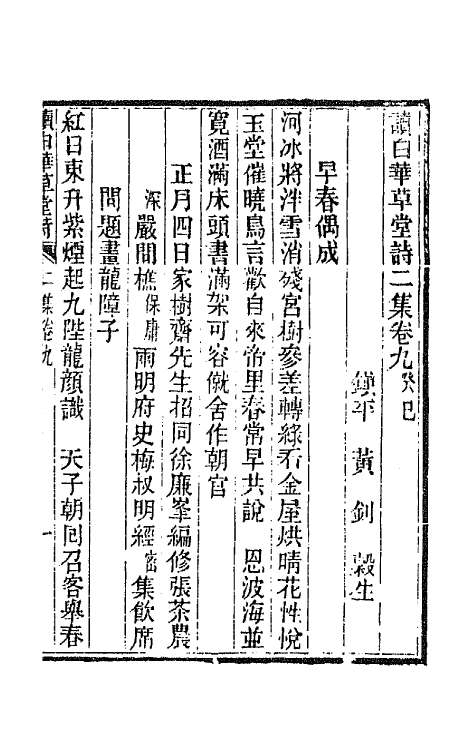 讀白華草堂詩二集卷九癸巳
鎮平 黃 釗 穀生
早春偶成
河冰將泮雪消殘宮樹參差轉綠看金屋烘晴花性悅
玉堂催曉鳥言歡自來帝里春常早共說 恩波海並
寬酒滿床頭書滿架可容僦舍作朝官
正月四日家樹齋先生招同徐廉峯編修張茶農
深嚴問樵保庸雨明府史梅叔明經密集飲席
間題畫龍障子
紅日東升紫煙起九陛龍顏識 天子朝回召客舉春
讀白華草堂詩 二集卷九 一